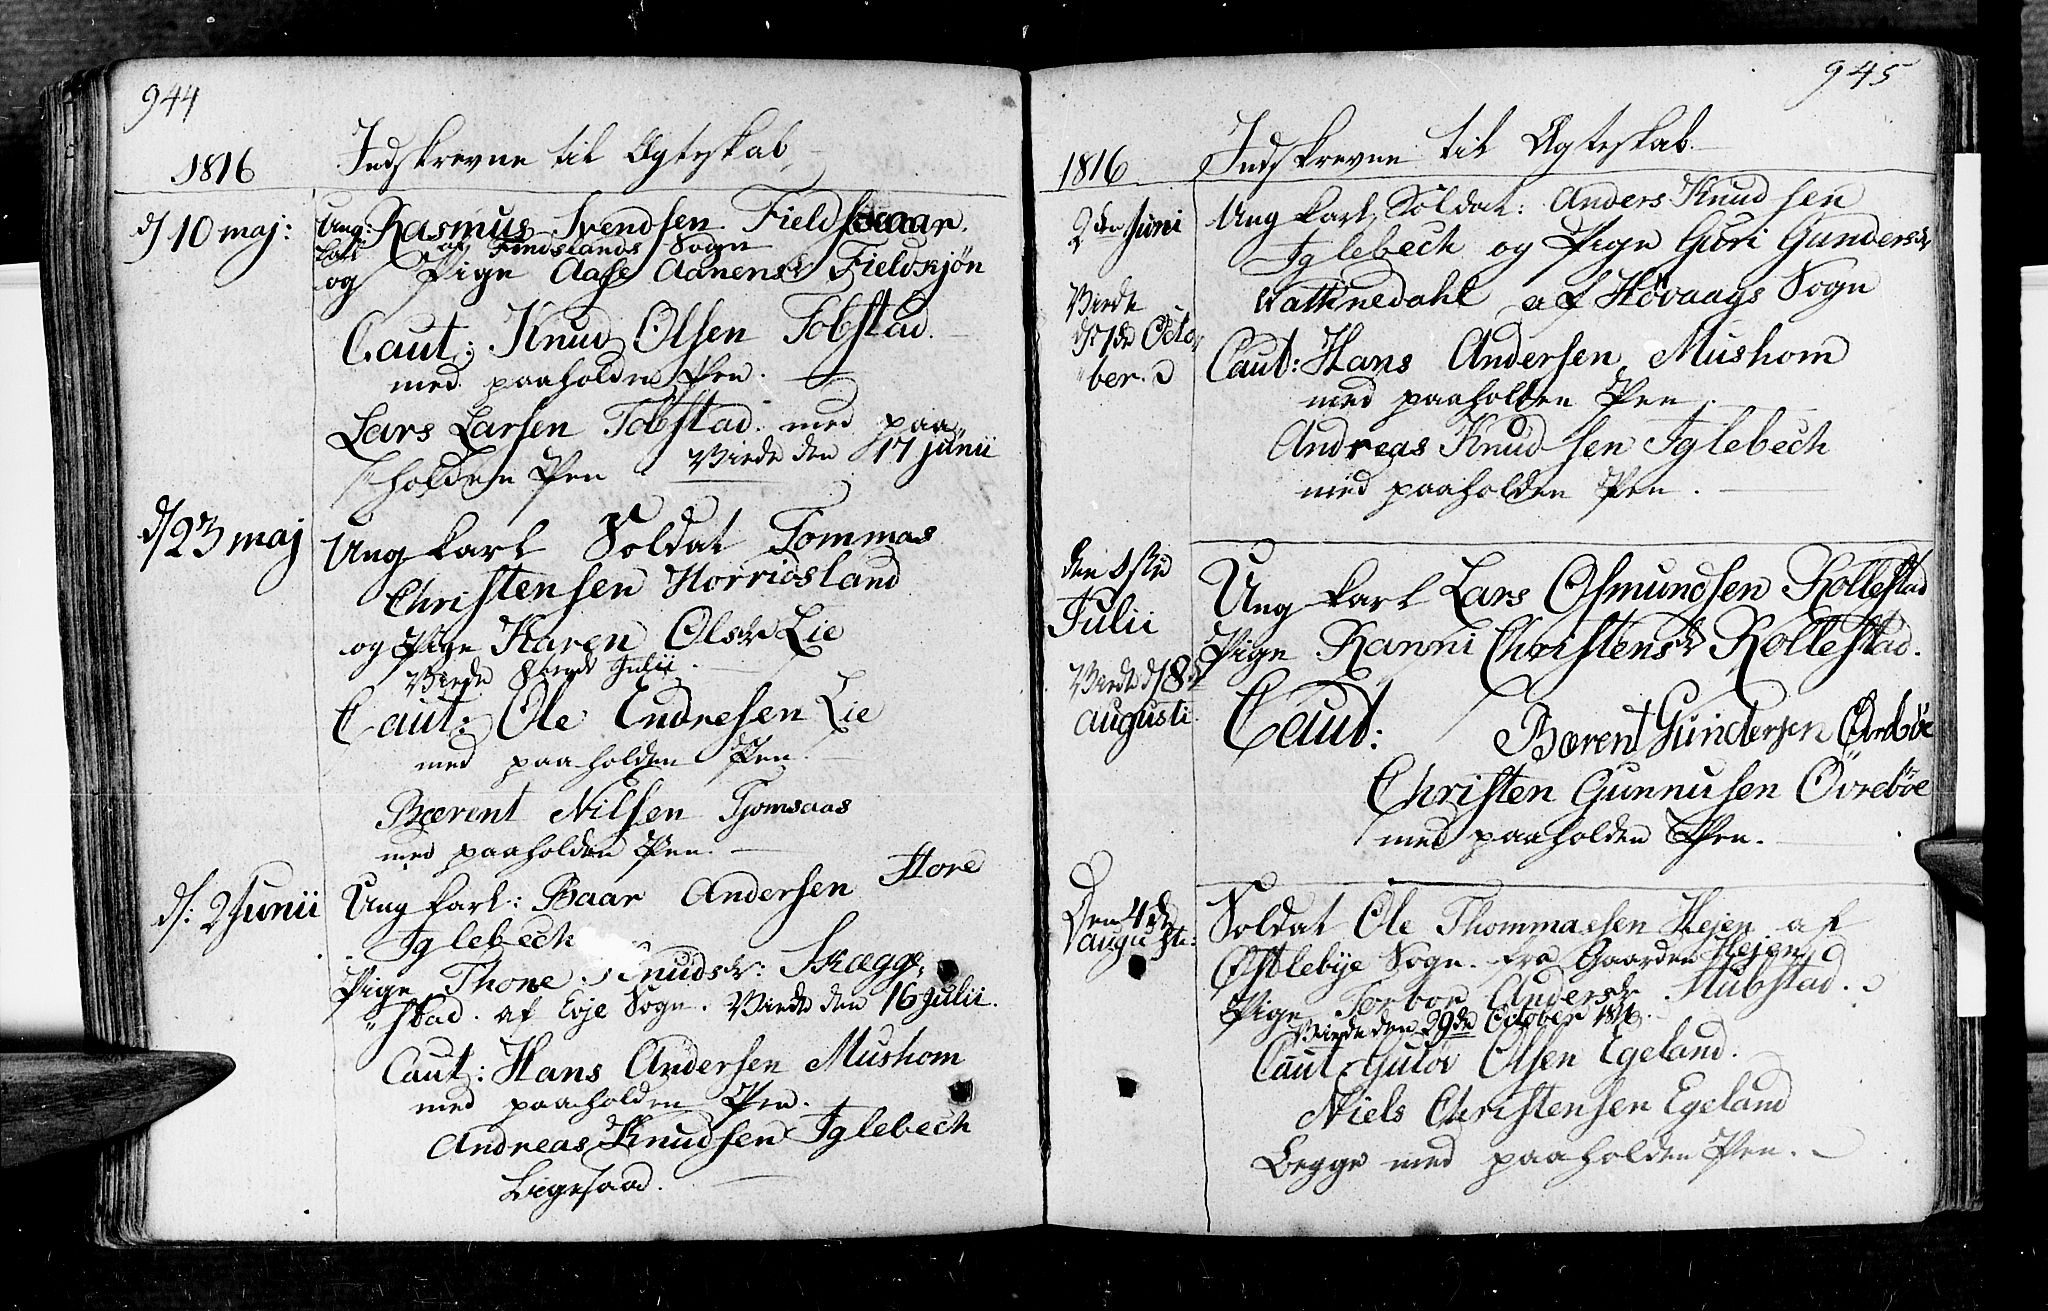 944
1816
Indskrevne til Ægteskab
d/ 10 maj:
Ung: Rasmus Svendsen Fieldskaar.
karl af Findslands Sogn
og Pige Aase Aanensdr Fieldskjön
Caut: Knud Olsen Tobstad.
med paaholden Pen.
Lars Larsen Tobstad. med paa
holden Pen Viede den 17 junii
d/ 23 maj
Ung karl Soldat Tommas
Christensen Horridsland
og Pige Karen Olsdr Lie
Viede Julii
Caut: Ole Endresen Lie
med paaholden Pen.
Bærent Nilsen Tjomsaas
med paaholden Pen.
d: 2 Junii
Ung karl: Baar Andersen Store
Iglebech
Pige Thone Knudsdr: Skægge
stad. af Evje Sogn. Viede den 16 Julii.
Caut: Hans Andersen Mushom
med paaholden Pen.
Andreas Knudsen Iglebech
Ligesaa.
945
1816
Indskrevne til Ægteskab
2den Juni
Ung karl, Soldat: Anders Knudsen
Iglebech og Pige Guri Gundersdr
Vattnedahl af Hövaags Sogn
Viede
d: 1de Octo
ber.
Caut: Hans Andersen Mushom
med paaholden Pen.
Andreas Knudsen Iglebech
med paaholden Pen.
den 1ste
Julii
Ung karl Lars Osmundsen Rollestad
Pige Ranni Christensdr Rollestad.
Viede d/ 8de
augusti.
Caut: Bærent Gundersen Övreböe
Christen Gunnusen Övreböe
med paaholden Pen.
Den 4de
augusti:
Soldat Ole Thommaesen Hejen af
Östlebye Sogn. fra Gaarden Hejen
Pige Torbor Andersdr Mubstad.
Viede den 29de October 1816.
Caut Gulov Olsen Egeland.
Niels Christensen Egeland
Begge med paaholden Pen.